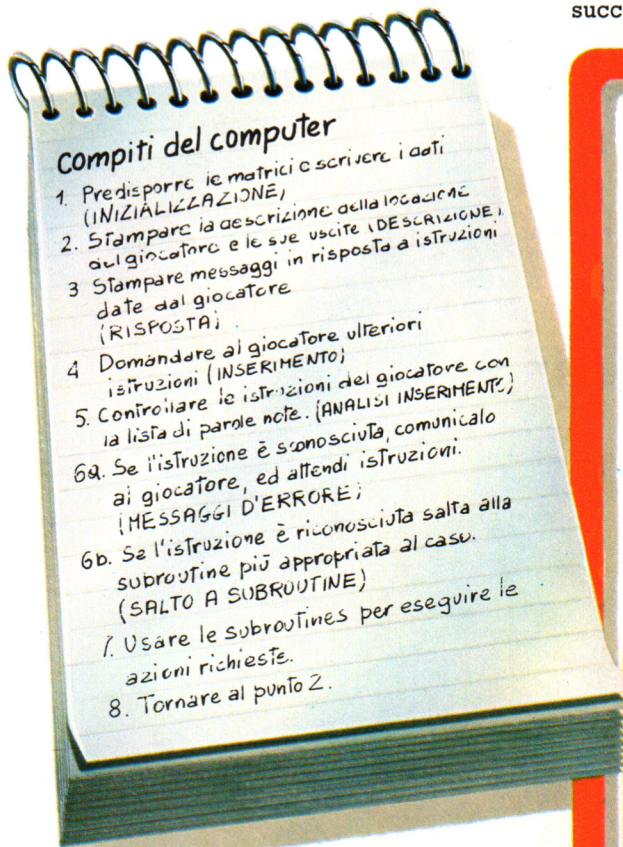 succ
Compiti del computer
1. Predisporre le matrici e scrivere i dati
(INIZIALIZZAZIONE)
2. Stampare la descrizione della locazione
del giocatore e le sue uscite (DESCRIZIONE).
3 Stampare messaggi in risposta a istruzioni
date dal giocatore
(RISPOSTA)
4 Domandare al giocatore ulteriori
istruzioni (INSERIMENTO)
5. Controllare le istruzioni del giocatore con
la lista di parole note. (ANALISI INSERIMENTO)
6a. Se l'istruzione è sconosciuta, comunicalo
al giocatore, ed attendi istruzioni.
(MESSAGGI D'ERRORE)
6b. Se l'istruzione è riconosciuta salta alla
subroutine più appropriata al caso.
(SALTO A SUBROUTINE)
7. Usare le subroutines per eseguire le
azioni richieste.
8. Tornare al punto 2.